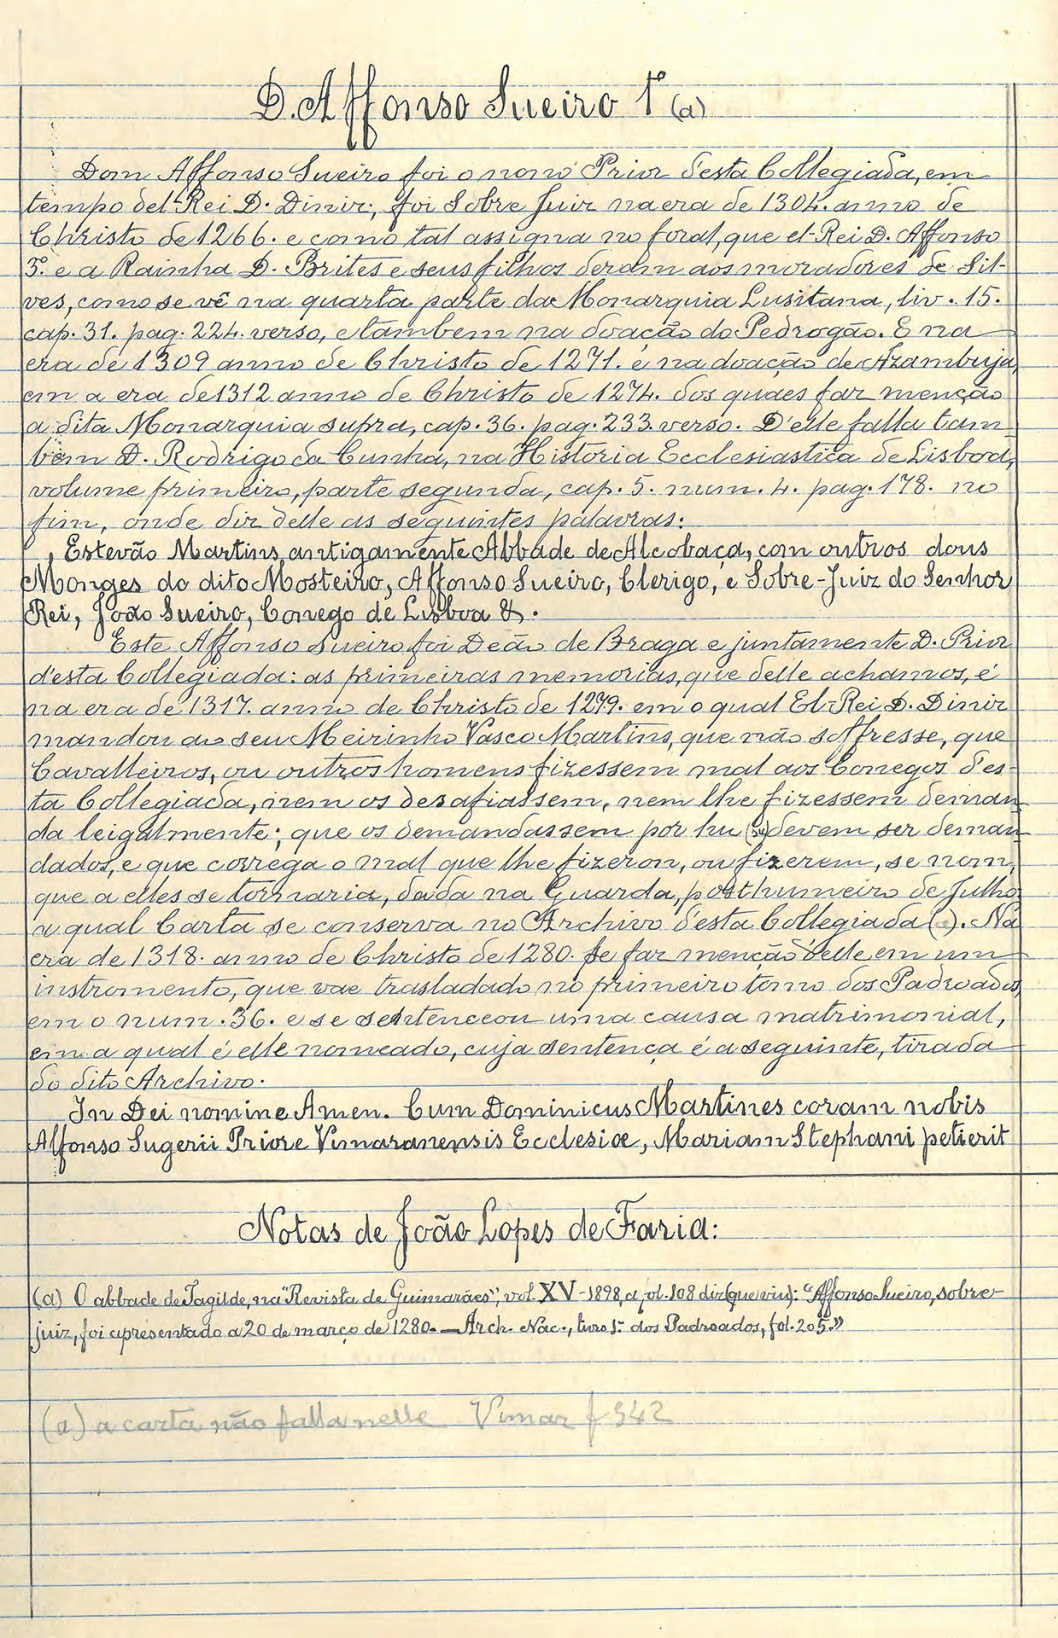 D. Affonso Sueiro 1º (a)
Dom Affonso Sueiro foi o nono Prior d'esta Collegiada, em
tempo del-Rei D. Diniz; foi Sobre Juiz na era de 1304. anno de
Christo de 1266. e como tal assigna no foral, que el-Rei D. Affonso
3º. e a Rainha D. Brites e seus filhos deram aos moradores de Sil-
ves, como se vê na quarta parte da Monarquia Lusitana, liv. 15.
cap. 31. pag. 224. verso, e tambem na doação do Pedrogão. E na
era de 1309 anno de Christo de 1271. e na doação de Azambuja,
em a era de 1312 anno de Christo de 1274. dos quaes faz menção
a dita Monarquia supra, cap. 36. pag. 233. verso. D'elle falla tam-
bem D. Rodrigo da Cunha, na Historia Ecclesiastica de Lisboa,
volume primeiro, parte segunda, cap. 5. num. 4. pag. 178. no
fim, onde diz delle as seguintes palavras:
Estevão Martins, antigamente Abbade de Alcobaça, com outros dous
Monges do dito Mosteiro, Affonso Sueiro, Clerigo, e Sobre-Juiz do Senhor
Rei, João Sueiro, Conego de Lisboa &.
Este Affonso Sueiro foi Deão de Braga e juntamente D. Prior
d'esta Collegiada: as primeiras memorias, que delle achamos, é
na era de 1317. anno de Christo de 1279. em o qual El-Rei D. Diniz
mandou ao seu Meirinho Vasco Martins, que não soffresse, que
Cavalleiros, ou outros homens fizessem mal aos Conegos d'es-
ta Collegiada, nem os desafiassem, nem lhe fizessem deman
da leigalmente; que os demandassem por hu devem ser deman
dados, e que correga o mal que lhe fizeron, ou fizerem, se nom,
que a elles se tornaria, dada na Guarda, posthumeiro de Julho,
a qual Carta se conserva no Archivo d'esta Collegiada (a). Na
era de 1318. anno de Christo de 1280. se faz menção delle em um
instromento, que vae trasladado no primeiro tomo dos Padroados,
em o num. 36. e se sentenceou uma causa matrimonial,
em a qual é elle nomeado, cuja sentença é a seguinte, tirada
do dito Archivo.
In Dei nomine Amen. Cum Dominicus Martines coram nobis
Alfonso Sugerii Priore Vimaranensis Ecclesiæ, Mariam Stephani petierit
Notas de João Lopes de Faria:
(a) O abbade de Tagilde, na "Revista de Guimarães", vol. XV-1898, a fol. 108 diz (que viu): "Affonso Sueiro, sobre-
juiz, foi apresentado a 20 de março de 1280. — Arch. Nac., livro 1.º dos Padroados, fol. 205."
(a) a carta não falla nelle Vimar f 342